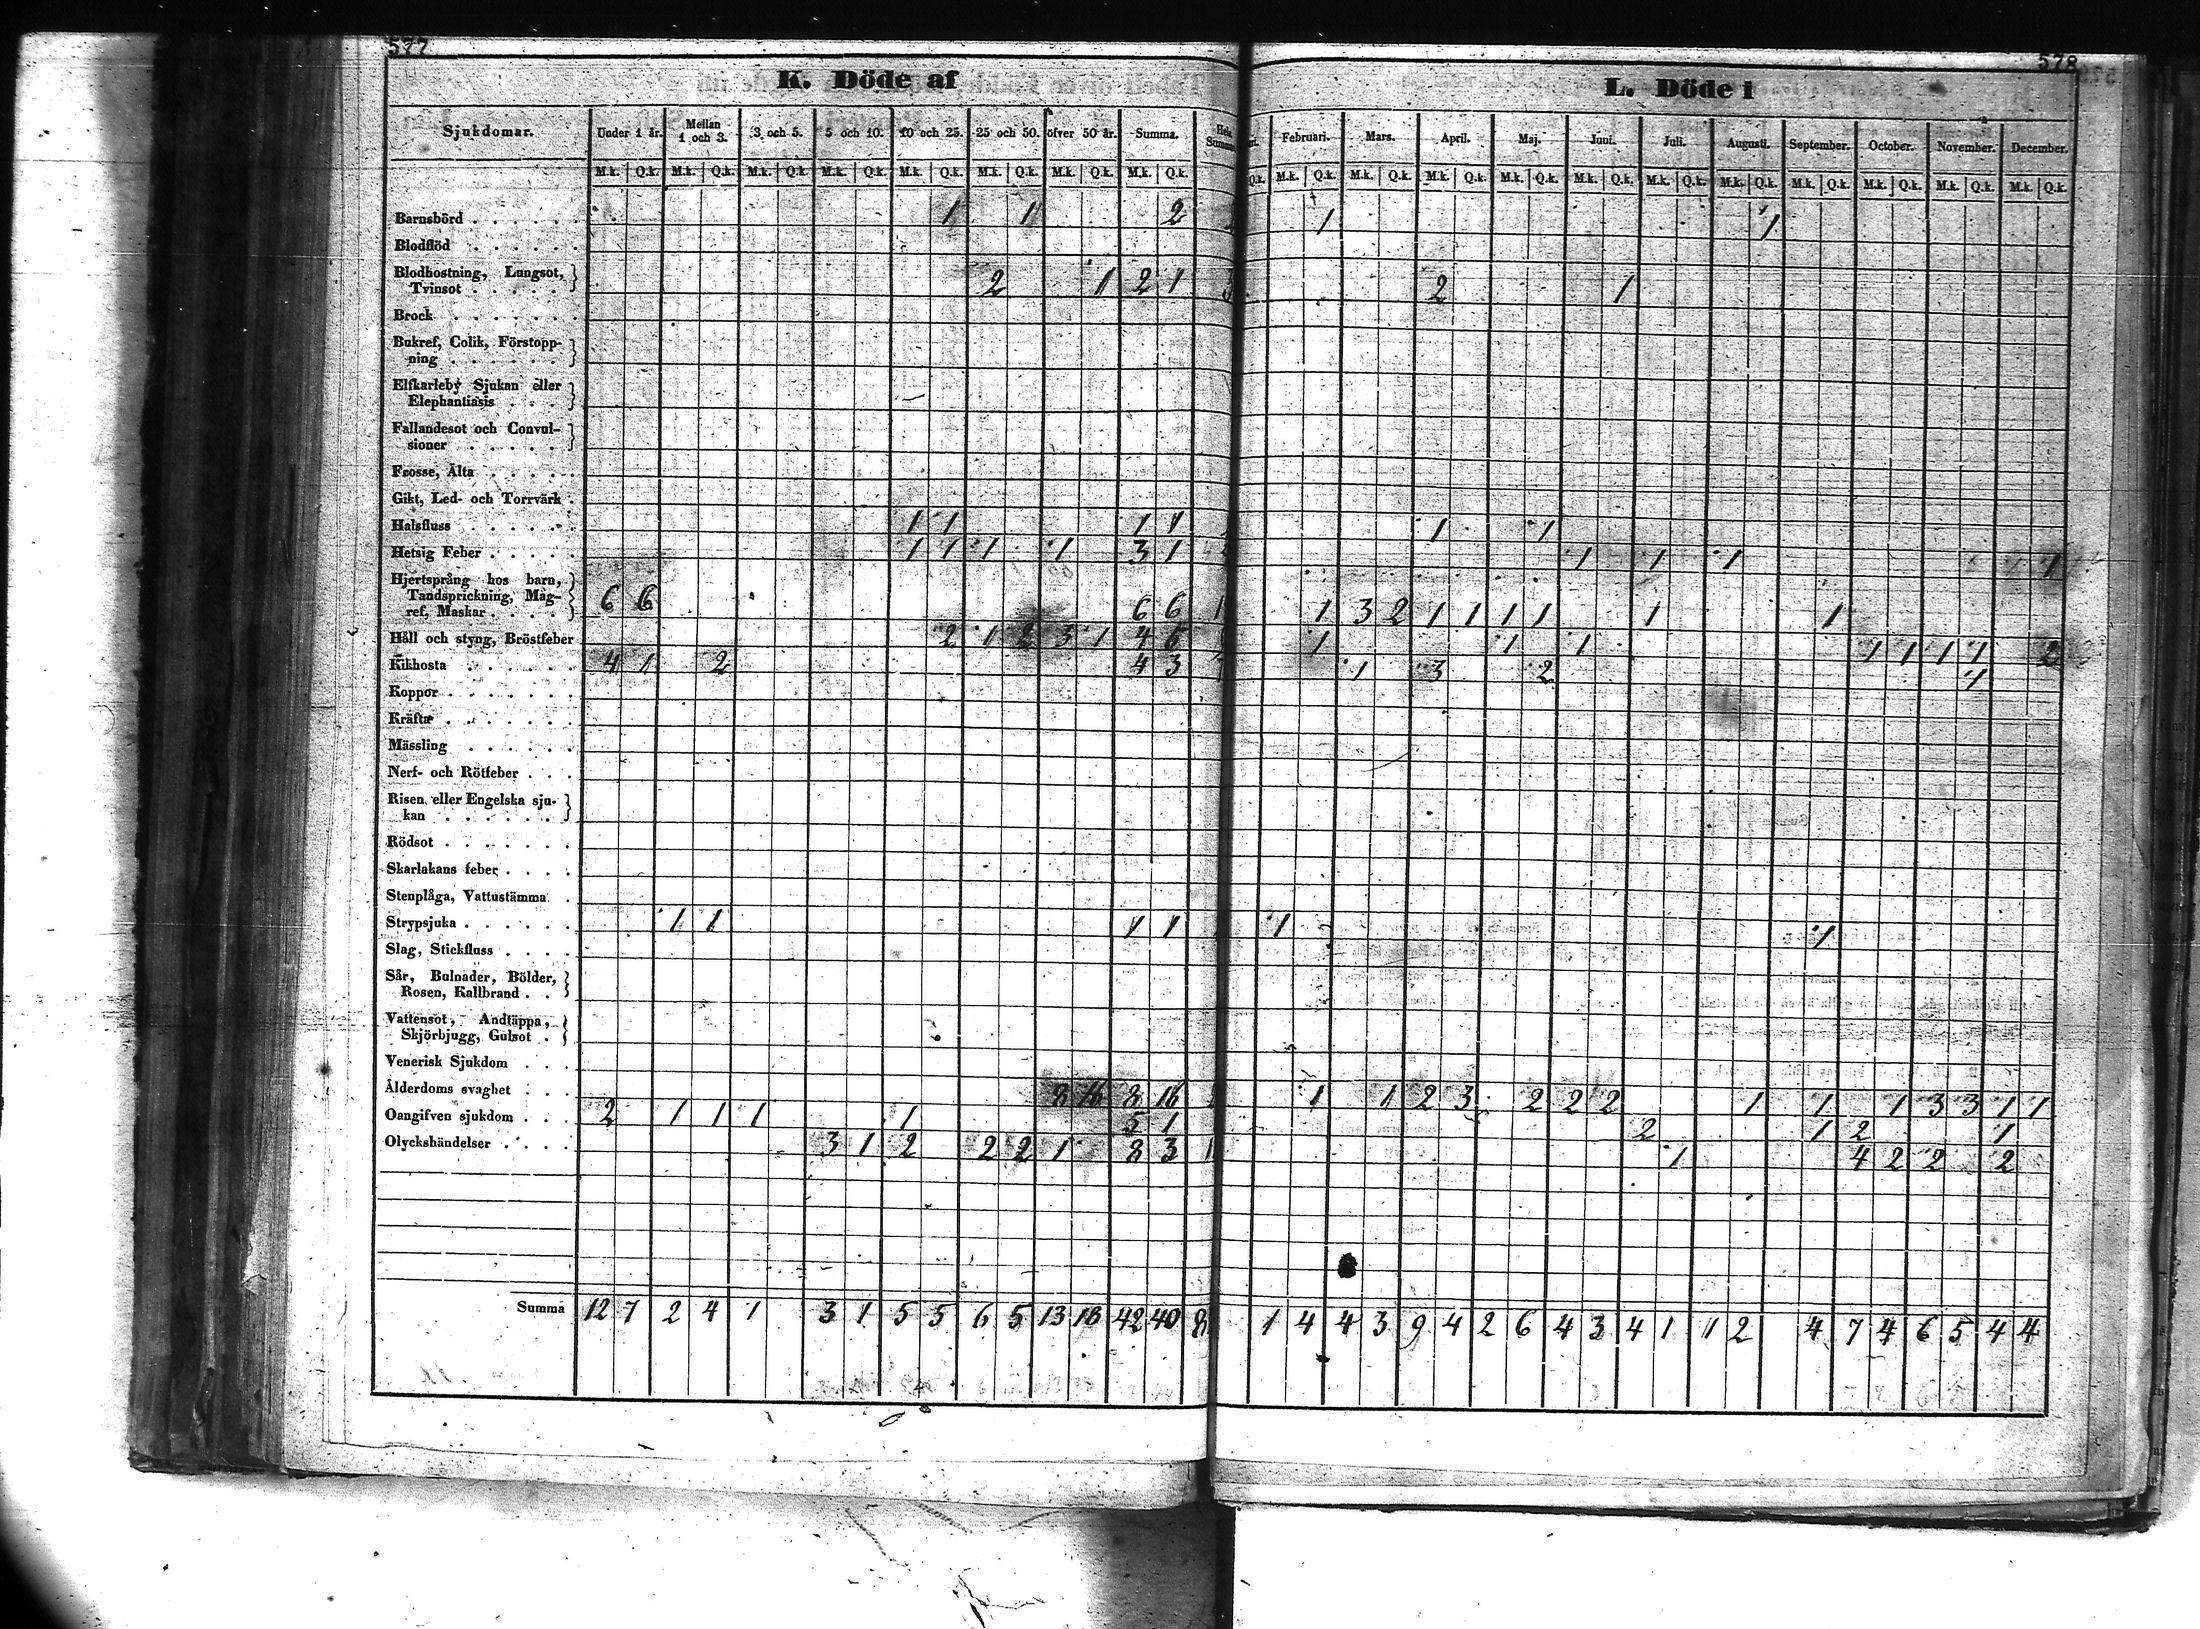 577
578
K. Döde af
L. Döde i
Sjukdomar. Under 1 år. Mellan 1 och 3. 3 och 5. 5 och 10. 10 och 25. 25 och 50. öfver 50 år. Summa. Hela Summan.
Februari. Mars. April. Maj. Juni. Juli. Augusti. September. October. November. December.
M.k. Q.k. M.k. Q.k. M.k. Q.k. M.k. Q.k. M.k. Q.k. M.k. Q.k. M.k. Q.k. M.k. Q.k.
Q.k. M.k. Q.k. M.k. Q.k. M.k. Q.k. M.k. Q.k. M.k. Q.k. M.k. Q.k. M.k. Q.k. M.k. Q.k. M.k. Q.k. M.k. Q.k. M.k. Q.k.
Barnsbörd 1 1 2 1 1
Blodflöd
Blodhostning, Lungsot,
Tvinsot 2 1 2 1 3 2 1
Brock
Bukref, Colik, Förstopp-
ning
Elfkarleby Sjukan eller
Elephantiasis
Fallandesot och Convul-
sioner
Frosse, Älta
Gikt, Led- och Torrvärk
Halsfluss 1 1 1 1 1 1
Hetsig Feber 1 1 1 1 3 1 1 1 1 1
Hjertsprång hos barn,
Tandsprickning, Mag-
ref, Maskar 6 6 6 6 1 1 3 2 1 1 1 1 1 1
Håll och styng, Bröstfeber 2 1 2 3 1 4 5 1 1 1 1 1 1 1 2
Kikhosta 4 1 2 4 3 1 3 2 1
Koppor
Kräfta
Mässling
Nerf- och Rötfeber
Risen eller Engelska sju-
kan
Rödsot
Skarlakans feber
Stenplåga, Vattustämma
Strypsjuka 1 1 1 1 1 1
Slag, Stickfluss
Sår, Bulnader, Bölder,
Rosen, Kallbrand
Vattensot, Andtäppa,
Skjörbjugg, Gulsot
Venerisk Sjukdom
Ålderdoms svaghet 8 16 8 16 1 1 2 3 2 2 2 1 1 1 3 3 1 1
Oangifven sjukdom 2 1 1 1 1 5 1 2 1 2 1
Olyckshändelser 3 1 2 2 2 1 8 3 1 1 4 2 2 2
Summa 12 7 2 4 1 3 1 5 5 6 5 13 18 42 40 8 1 4 4 3 9 4 2 6 4 3 4 1 1 2 4 7 4 6 5 4 4